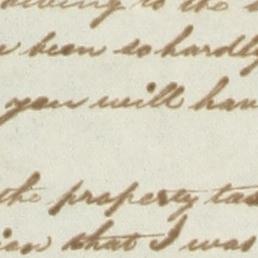 to the
been so hardly
you will hav
the property tax
that I was